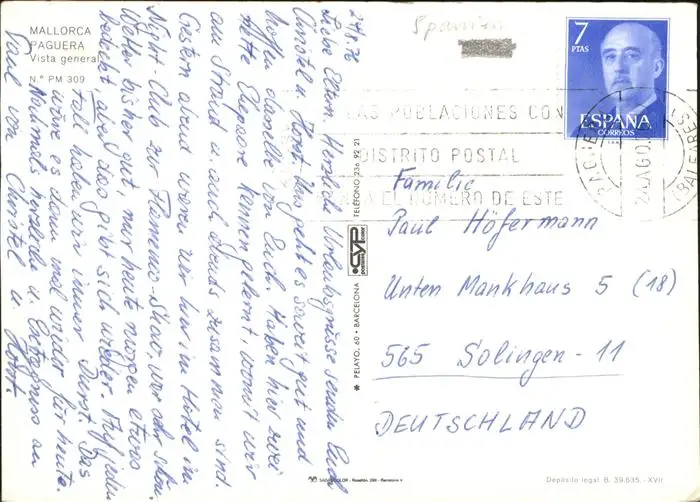 MALLORCA
PAGUERA
Vista general
N.º PM 309
24.8.76
Liebe Eltern! Herzliche Urlaubsgrüsse senden Euch
Christel u. Horst. Uns geht es soweit gut und
hoffen dasselbe von Euch. Haben hier zwei
nette Ehepaare kennen gelernt, womit wir
am Strand u. auch abends zusammen sind
Gestern abend waren wir hier im Hotel in
Night-Club zur Flamenco-Show, war sehr schön.
Wetter bisher gut, nur heute morgen etwas
bedeckt, aber das gibt sich wieder. Auf jeden
Fall haben wir immer Durst. Das
wäre es dann mal wieder für heute.
Nochmals herzliche u. Extragruss an
Paul von Christel u. Horst.
TELEFONO 236 92 21
CYP
* PELAYO, 60 - BARCELONA
Spanien
7
PTAS
ESPAÑA
CORREOS
LAS POBLACIONES CON
DISTRITO POSTAL
EL NUMERO DE ESTE
Familie
Paul Höfermann
Unten Mankhaus 5 (18)
565 Solingen-11
DEUTSCHLAND
Depósito legal B. 39.635. - XVII